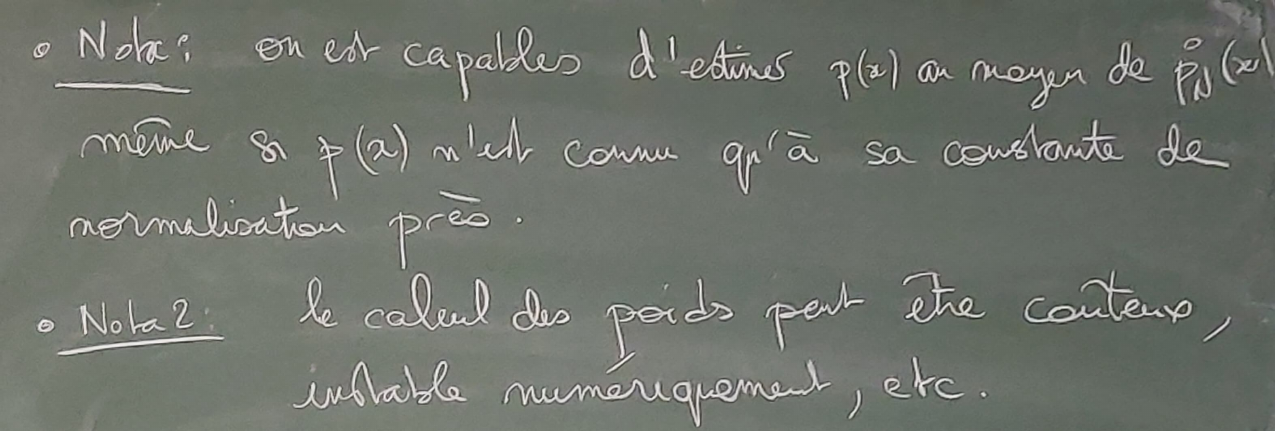 • Nota : on est capables d'estimer p(x) au moyen de p̂_N(x)
même si p(x) n'est connu qu'à sa constante de
normalisation près.
• Nota 2 : le calcul des poids peut être coûteux,
instable numériquement, etc.